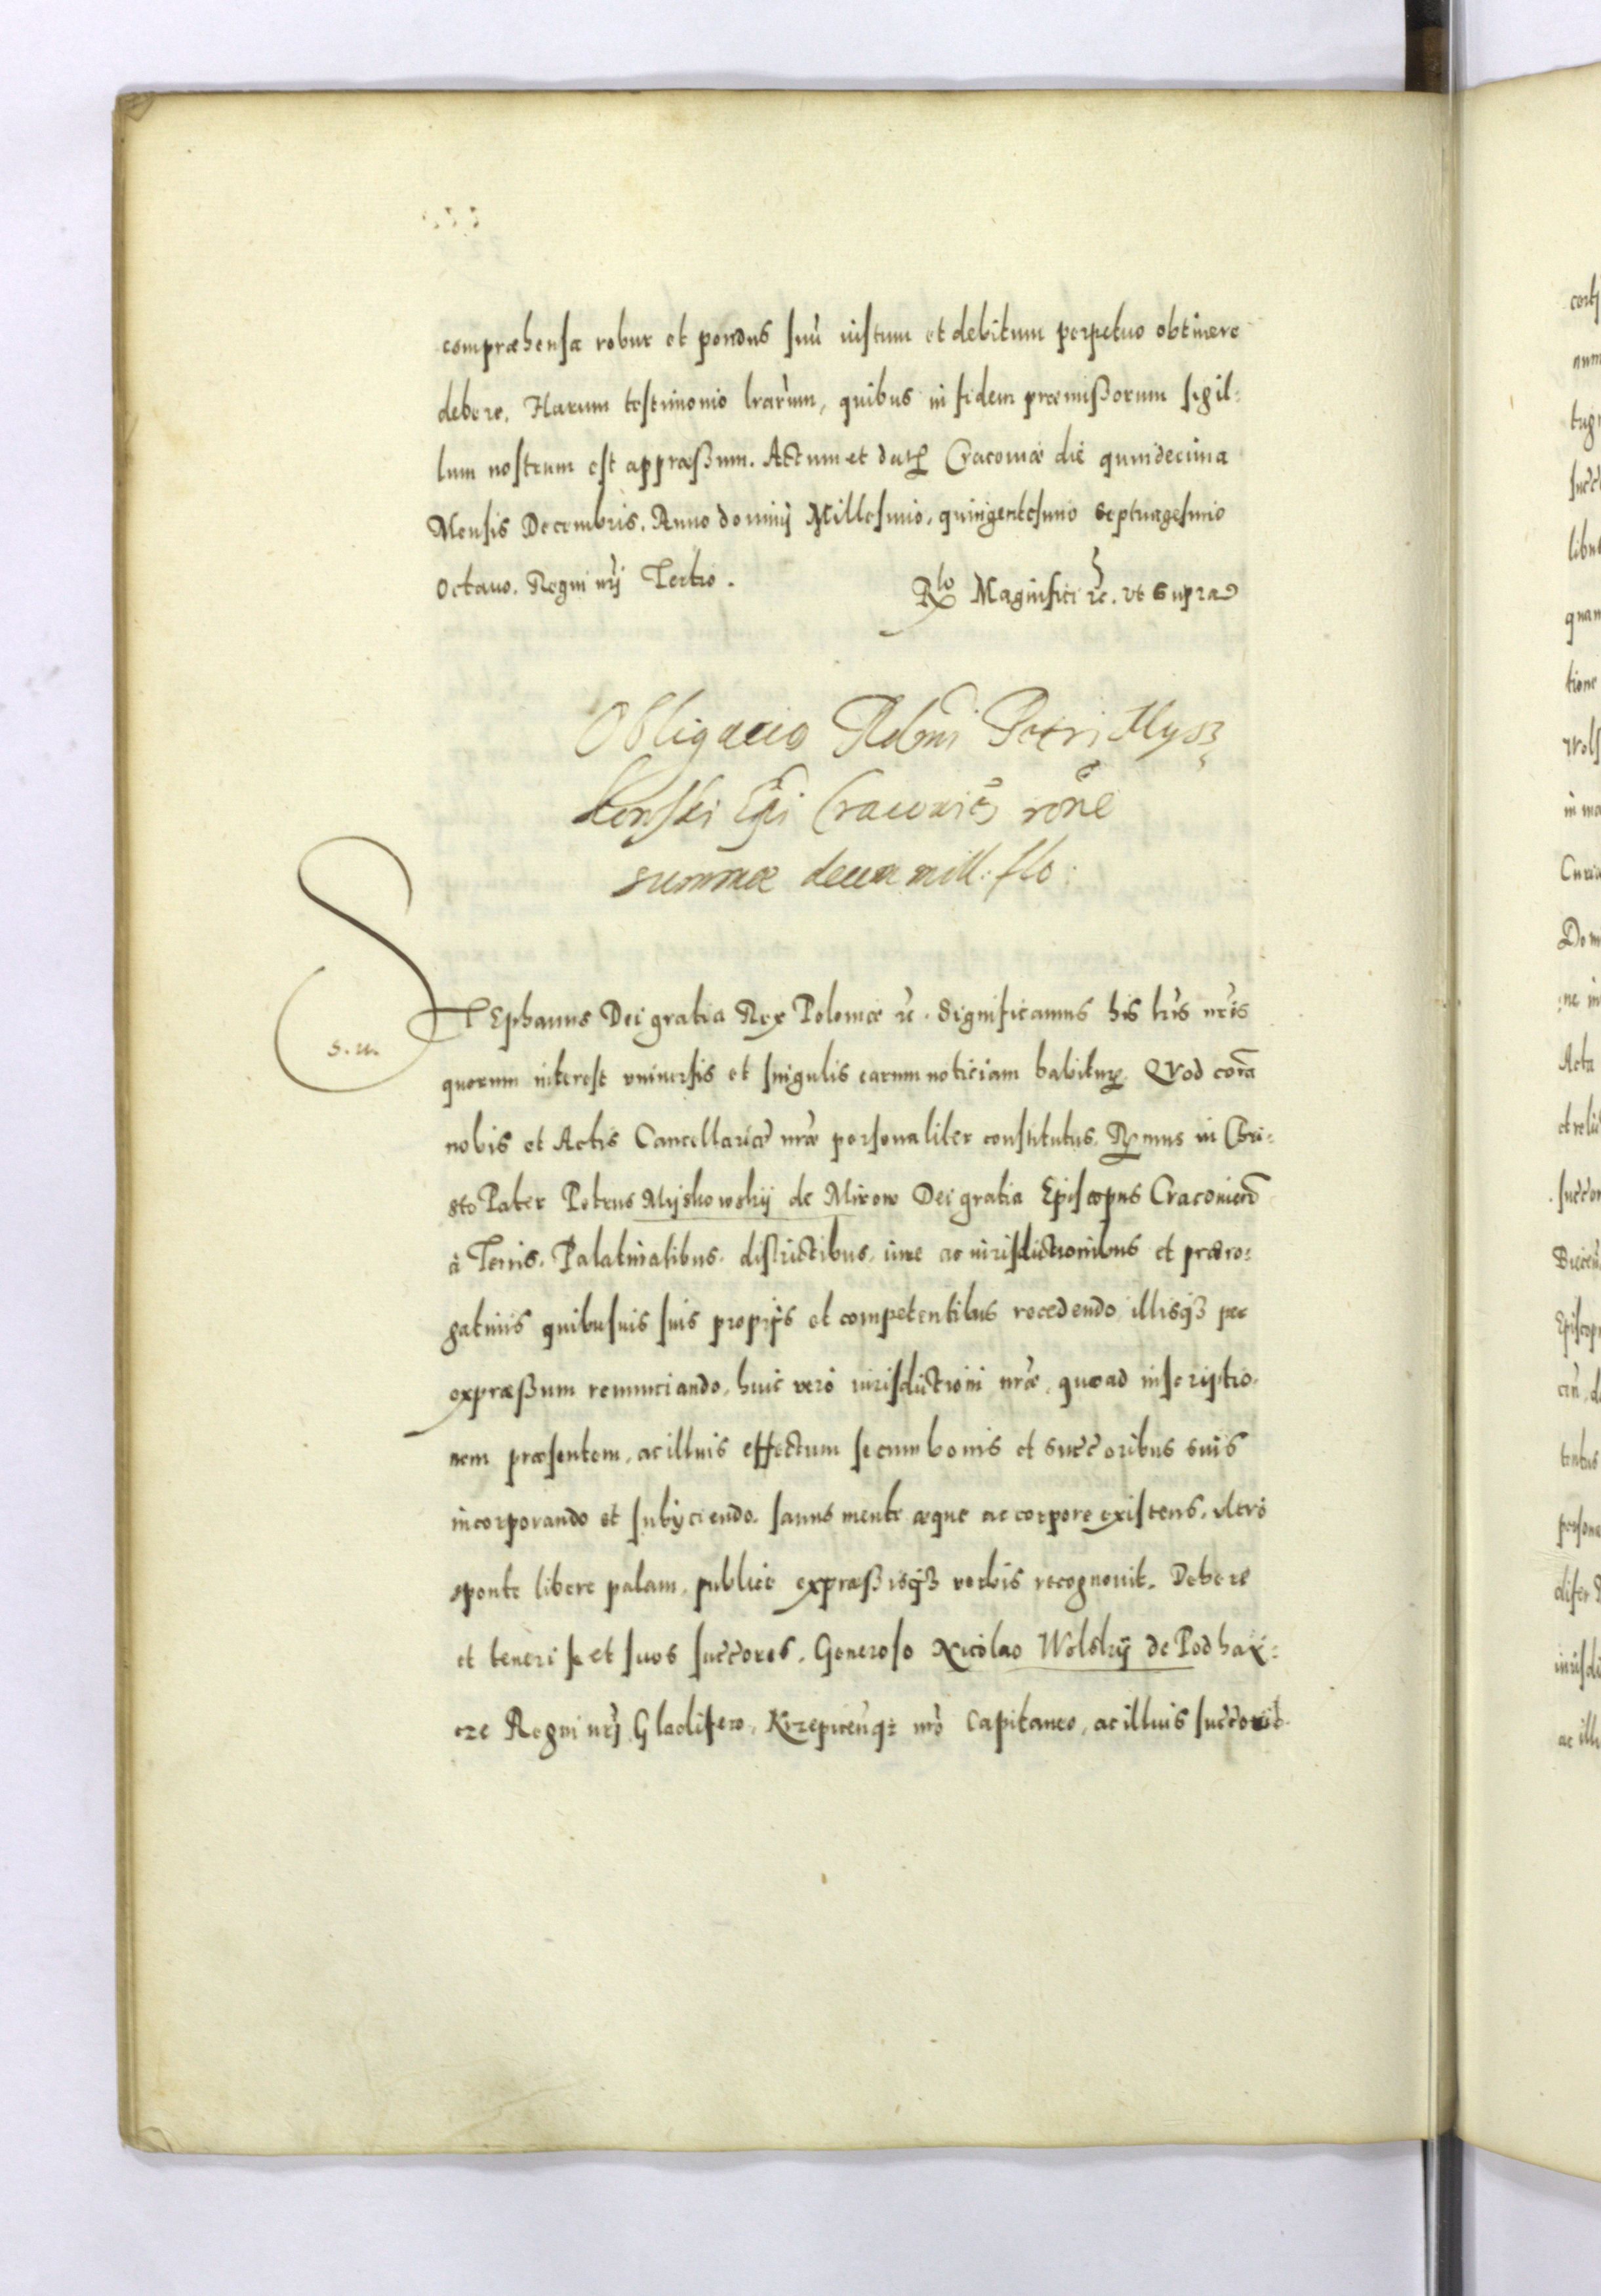 compræhensæ robur et pondus suũ iustum et debitum perpetuo obtinere
debere. Harum testimonio lrarum, quibus in fidem præmißorum sigil:
lum nostrum est appræßum. Actum et datȝ Cracoviæ die quindecima
Mensis Decembris. Anno dominij Millesimo, quingentesimo septuagesimo
Octauo. Regni nrj Tertio.
Rlo Magnifici ɾc. vt supra
Obligacio Rdmi Petri Mysz
konski Epi Cracovien rone
summæ decem mill: flo:
STEphanus Dei gratia Rex Poloniæ ɾc. Significamus his lris nris
s. n.
quorum interest vniuersis et singulis earum noticiam habiturȝ. Quod cora
nobis et Actis Cancellariæ nræ personaliter constitutus Rmus in Chri:
sto Pater Petrus Myskowskij de Mirow Dei gratia Episcopus Cracovien
à Terris. Palatinatibus. districtibus, iure ac iurisdictionibus et præro:
gatiuis quibusuis suis proprijs et competentibus recedendo, illisqȝ per
expræßum renunciando, huic verò iurisdictioni nræ, quoad inscriptio
nem præsentem, ac illius effectum se cum bonis et succoribus suis
incorporando et subijciendo. sanus mente æque ac corpore existens, vltrò
sponte libere palam, publice expræßisqȝ verbis recognouit. Debere
et teneri se et suos succores. Generoso Nicolao Wolskij de Podhay:
cze Regni nrj Gladifero, Krzepicenqȝ nro Capitaneo, ac illius succorib.